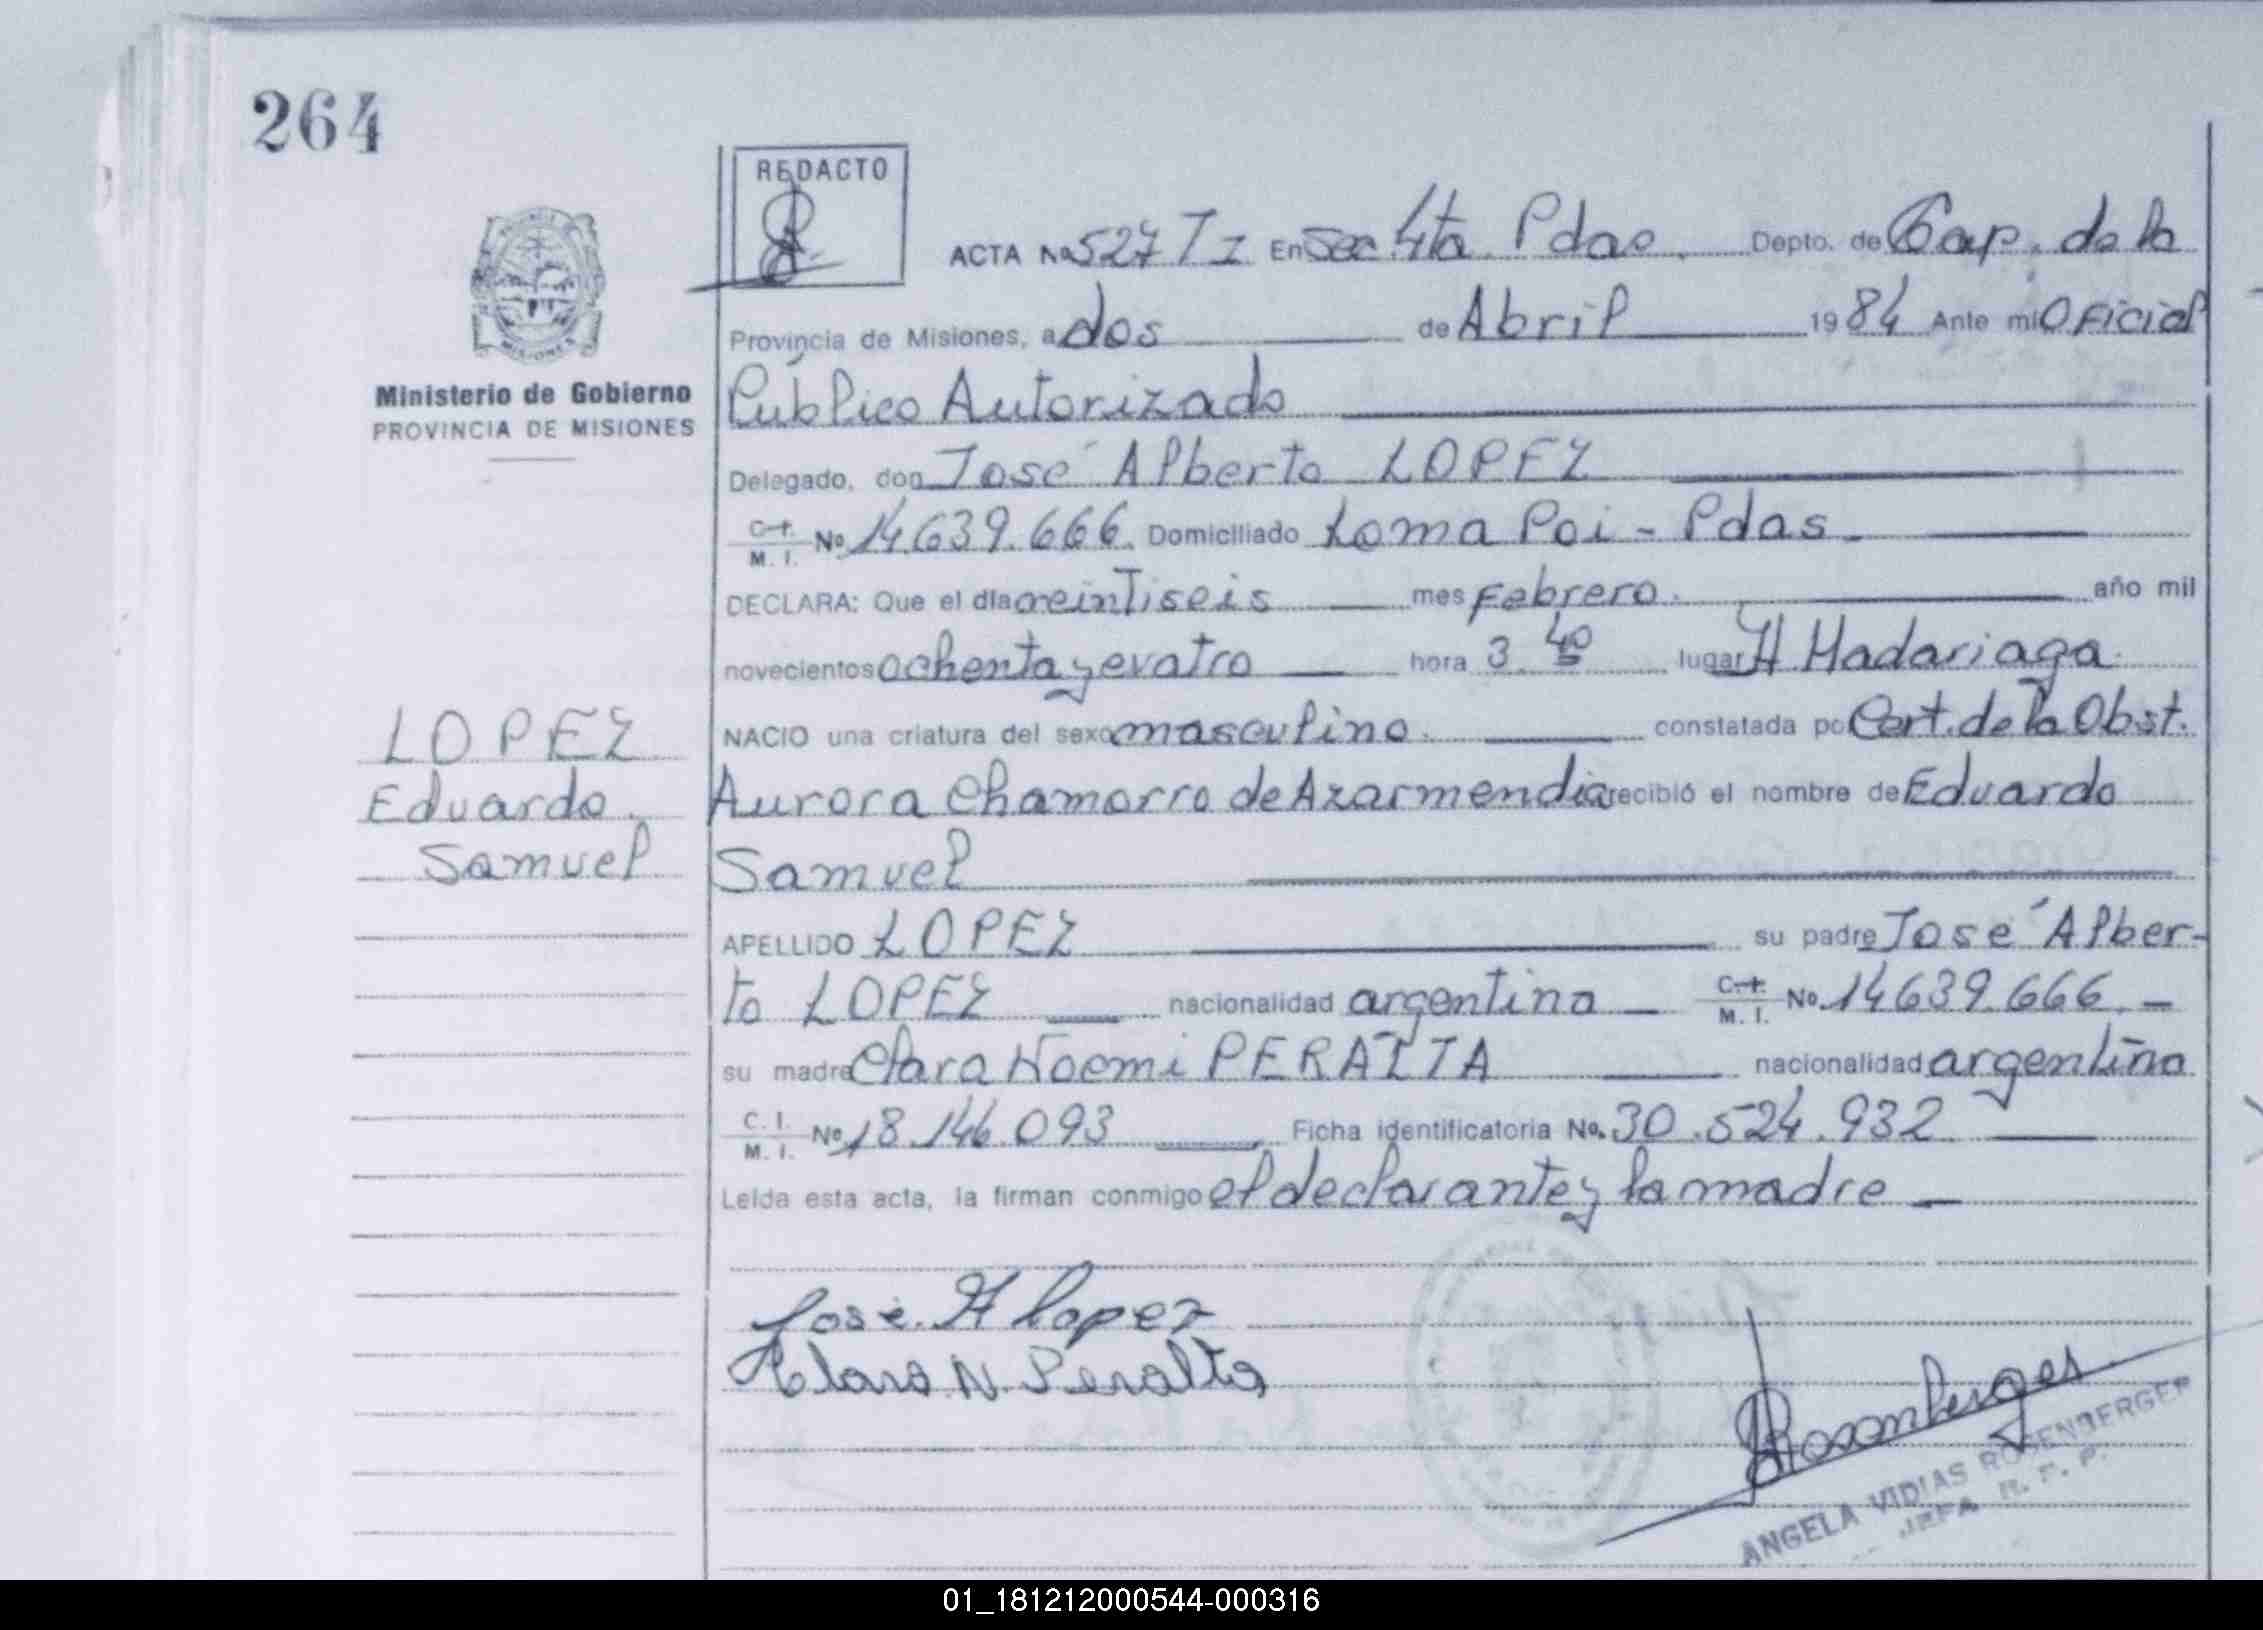 264
REDACTO
ACTA No 527 T I En Sec. 4ta Pdas. Depto. de Cap. de la
Provincia de Misiones, a dos de Abril 1984 Ante mi Oficial
Público Autorizado
Delegado, don José Alberto LOPEZ
C. I. M. I. No 14.639.666. Domiciliado Loma Poi - Pdas.
DECLARA: Que el día veintiseis mes Febrero. año mil
novecientos ochenta y cuatro hora 3.40 lugar H Madariaga.
NACIO una criatura del sexo masculino. constatada por Cert. de la Obst.
Aurora Chamorro de Azarmendia recibió el nombre de Eduardo
Samuel
APELLIDO LOPEZ su padre José Alber-
to LOPEZ nacionalidad argentino C. I. M. I. No. 14.639.666. -
su madre Clara Noemi PERALTA nacionalidad argentina
C. I. M. I. No 18.146.093 Ficha identificatoria No. 30.524.932
Leída esta acta, la firman conmigo el declarante y la madre
José. A Lopez
Clara N. Peralta
Rosenberger
ANGELA VIDIAS ROSENBERGER
JEFA R. P. P.
MISIONES
Ministerio de Gobierno
PROVINCIA DE MISIONES
LOPEZ
Eduardo.
Samuel
01_181212000544-000316